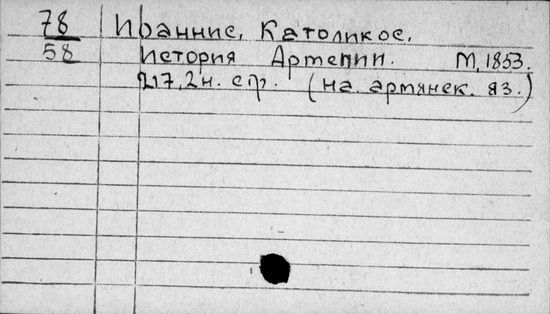 78 Иоаннис, Католикос.
58 История Армении. М, 1853.
217, 2 н. стр. (на армянск. яз.)